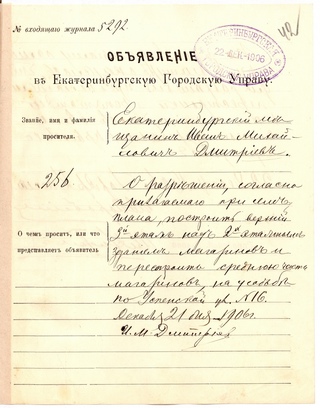 № входящаго журнала 5292
42
ОБЪЯВЛЕНІЕ
ЕКАТЕРИНБУРГСКАЯ
22 ДЕК. 1906
ГОРОДСКАЯ УПРАВА
въ Екатеринбургскую Городскую Управу.
Званіе, имя и фамилія просителя.
Екатеринбургскій мѣ-
щанинъ Иванъ Михай-
ловичъ Дмитріевъ.
256
О чемъ проситъ, или что представляетъ объявитель
О разрѣшеніи, согласно
прилагаемаго при семъ
плана, построить верхній
3й этажъ надъ 2хъ этажнымъ
зданіемъ магазиновъ и
перестроить среднюю часть
магазиновъ, на усадьбѣ
по Успенской ул. №16.
Декабря 21 дня 1906 г.
И. М. Дмитріевъ